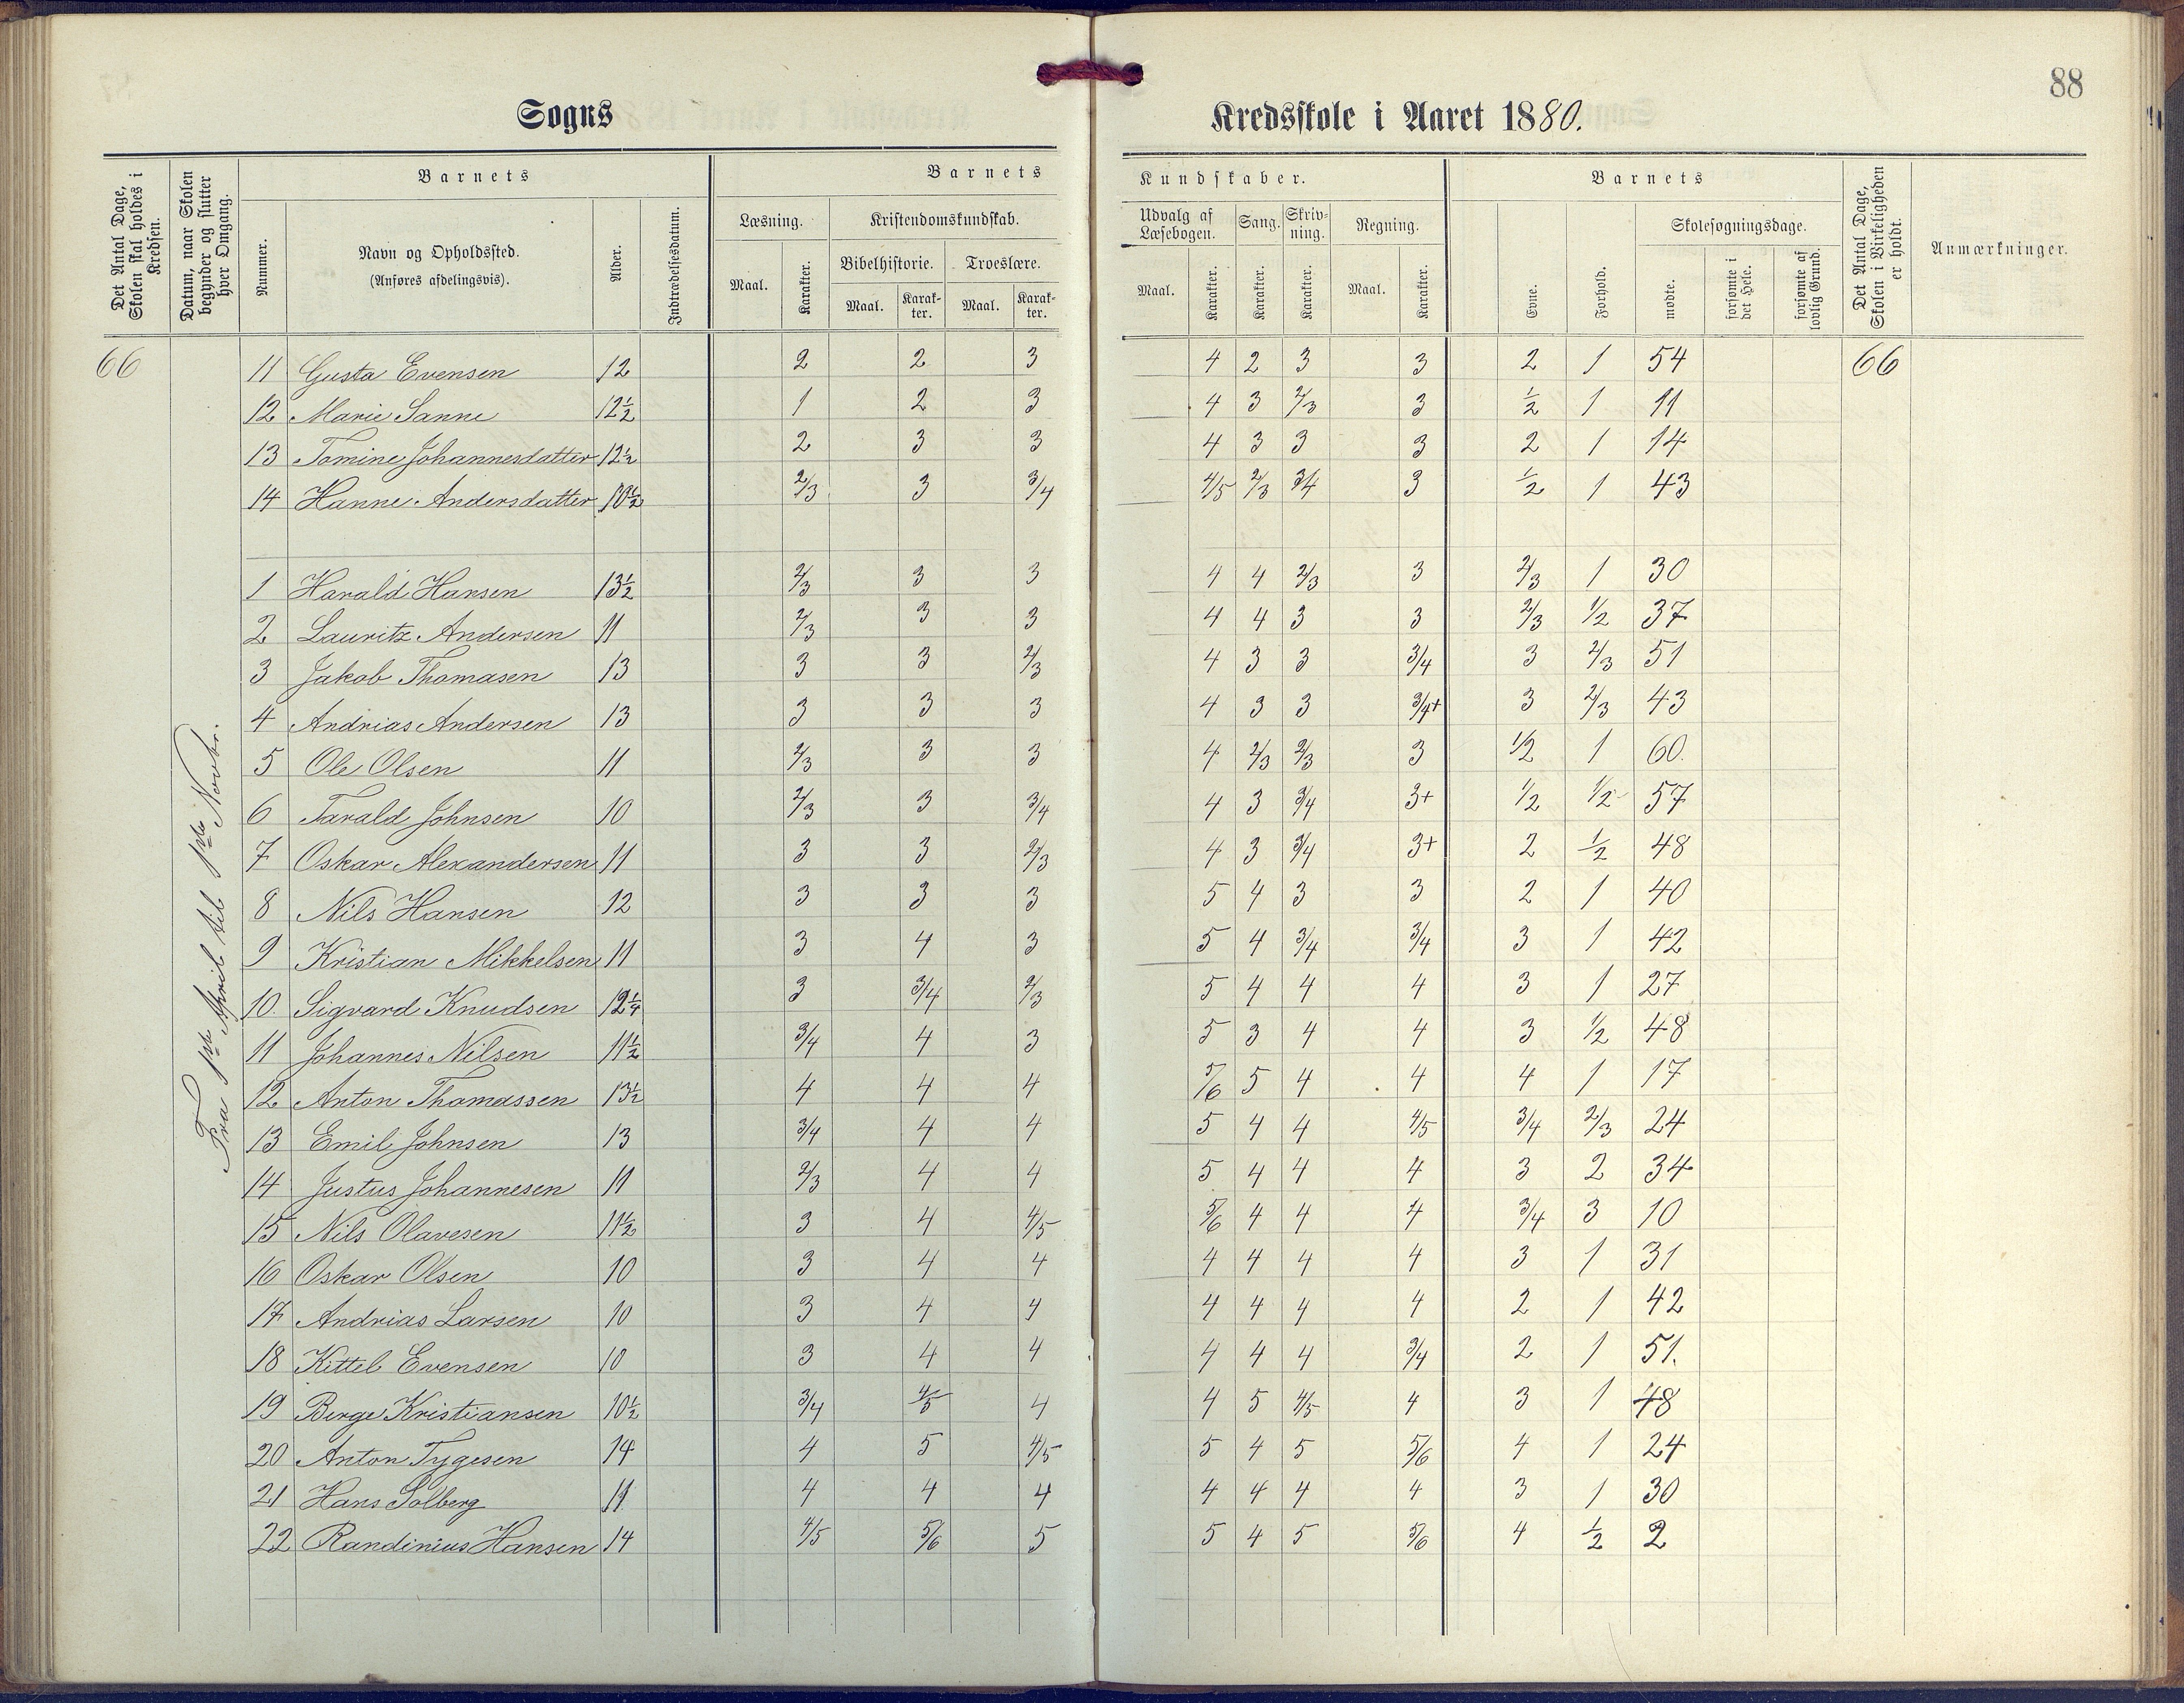 88
Sogns Kredsskole i Aaret 1880.
Det Antal Dage, Skolen skal holdes i Kredsen.
Datum, naar Skolen begynder og slutter hver Omgang.
Barnets
Nummer.
Navn og Opholdssted.
(Anføres afdelingsvis).
Alder.
Indtrædelsesdatum.
Barnets Kundskaber.
Læsning. Kristendomskundskab.
Bibelhistorie. Troeslære.
Maal. Karakter. Maal. Karakter. Maal. Karakter.
Udvalg af Læsebogen. Sang. Skrivning. Regning.
Maal. Karakter. Karakter. Karakter. Maal. Karakter.
Barnets
Evne. Forhold. Skolesøgningsdage.
mødte. forsømte i det Hele. forsømte af lovlig Grund.
Det Antal Dage, Skolen i Virkeligheden er holdt.
Anmærkninger.
66 11 Gusta Evensen 12 2 2 3 4 2 3 3 2 1 54 66
12 Marie Sanne 12½ 1 2 3 4 3 2/3 3 ½ 1 11
13 Tomine Johannesdatter 12½ 2 3 3 4 3 3 3 2 1 14
14 Hanne Andersdatter 10½ 2/3 3 3/4 4/5 2/3 3/4 3 ½ 1 43
Fra 1ste April til 1ste Novbr.
1 Harald Hansen 13½ 2/3 3 3 4 4 2/3 3 2/3 1 30
2 Lauritz Andersen 11 2/3 3 3 4 4 3 3 2/3 1/2 37
3 Jakob Thomasen 13 3 3 2/3 4 3 3 3/4 3 2/3 51
4 Andrias Andersen 13 3 3 3 4 3 3 3/4+ 3 2/3 43
5 Ole Olsen 11 2/3 3 3 4 2/3 2/3 3 1/2 1 60.
6 Tarald Johnsen 10 2/3 3 3/4 4 3 3/4 3+ 1/2 1/2 57
7 Oskar Alexandersen 11 3 3 2/3 4 3 3/4 3+ 2 ½ 48
8 Nils Hansen 12 3 3 3 5 4 3 3 2 1 40
9 Kristian Mikkelsen 11 3 4 3 5 4 3/4 3/4 3 1 42
10. Sigvard Knudsen 12¼ 3 3/4 2/3 5 4 4 4 3 1 27
11 Johannes Nilsen 11½ 3/4 4 3 5 3 4 4 3 1/2 48
12 Anton Thomassen 13½ 4 4 4 5/6 5 4 4 4 1 17
13 Emil Johnsen 13 3/4 4 4 5 4 4 4/5 3/4 2/3 24
14 Justus Johannesen 11 2/3 4 4 5 4 4 4 3 2 34
15 Nils Olavesen 11½ 3 4 4/5 5/6 4 4 4 3/4 3 10
16 Oskar Olsen 10 3 4 4 4 4 4 4 3 1 31
17 Andrias Larsen 10 3 4 4 4 4 4 4 2 1 42
18 Kittel Evensen 10 3 4 4 4 4 4 3/4 2 1 51.
19 Berge Kristiansen 10½ 3/4 4/5 4 4 5 4/5 4 3 1 48
20 Anton Tygesen 14 4 5 4/5 5 4 5 5/6 4 1 24
21 Hans Solberg 11 4 4 4 4 4 4 4 3 1 30
22 Randinius Hansen 14 4/5 5/6 5 5 4 5 5/6 4 ½ 2